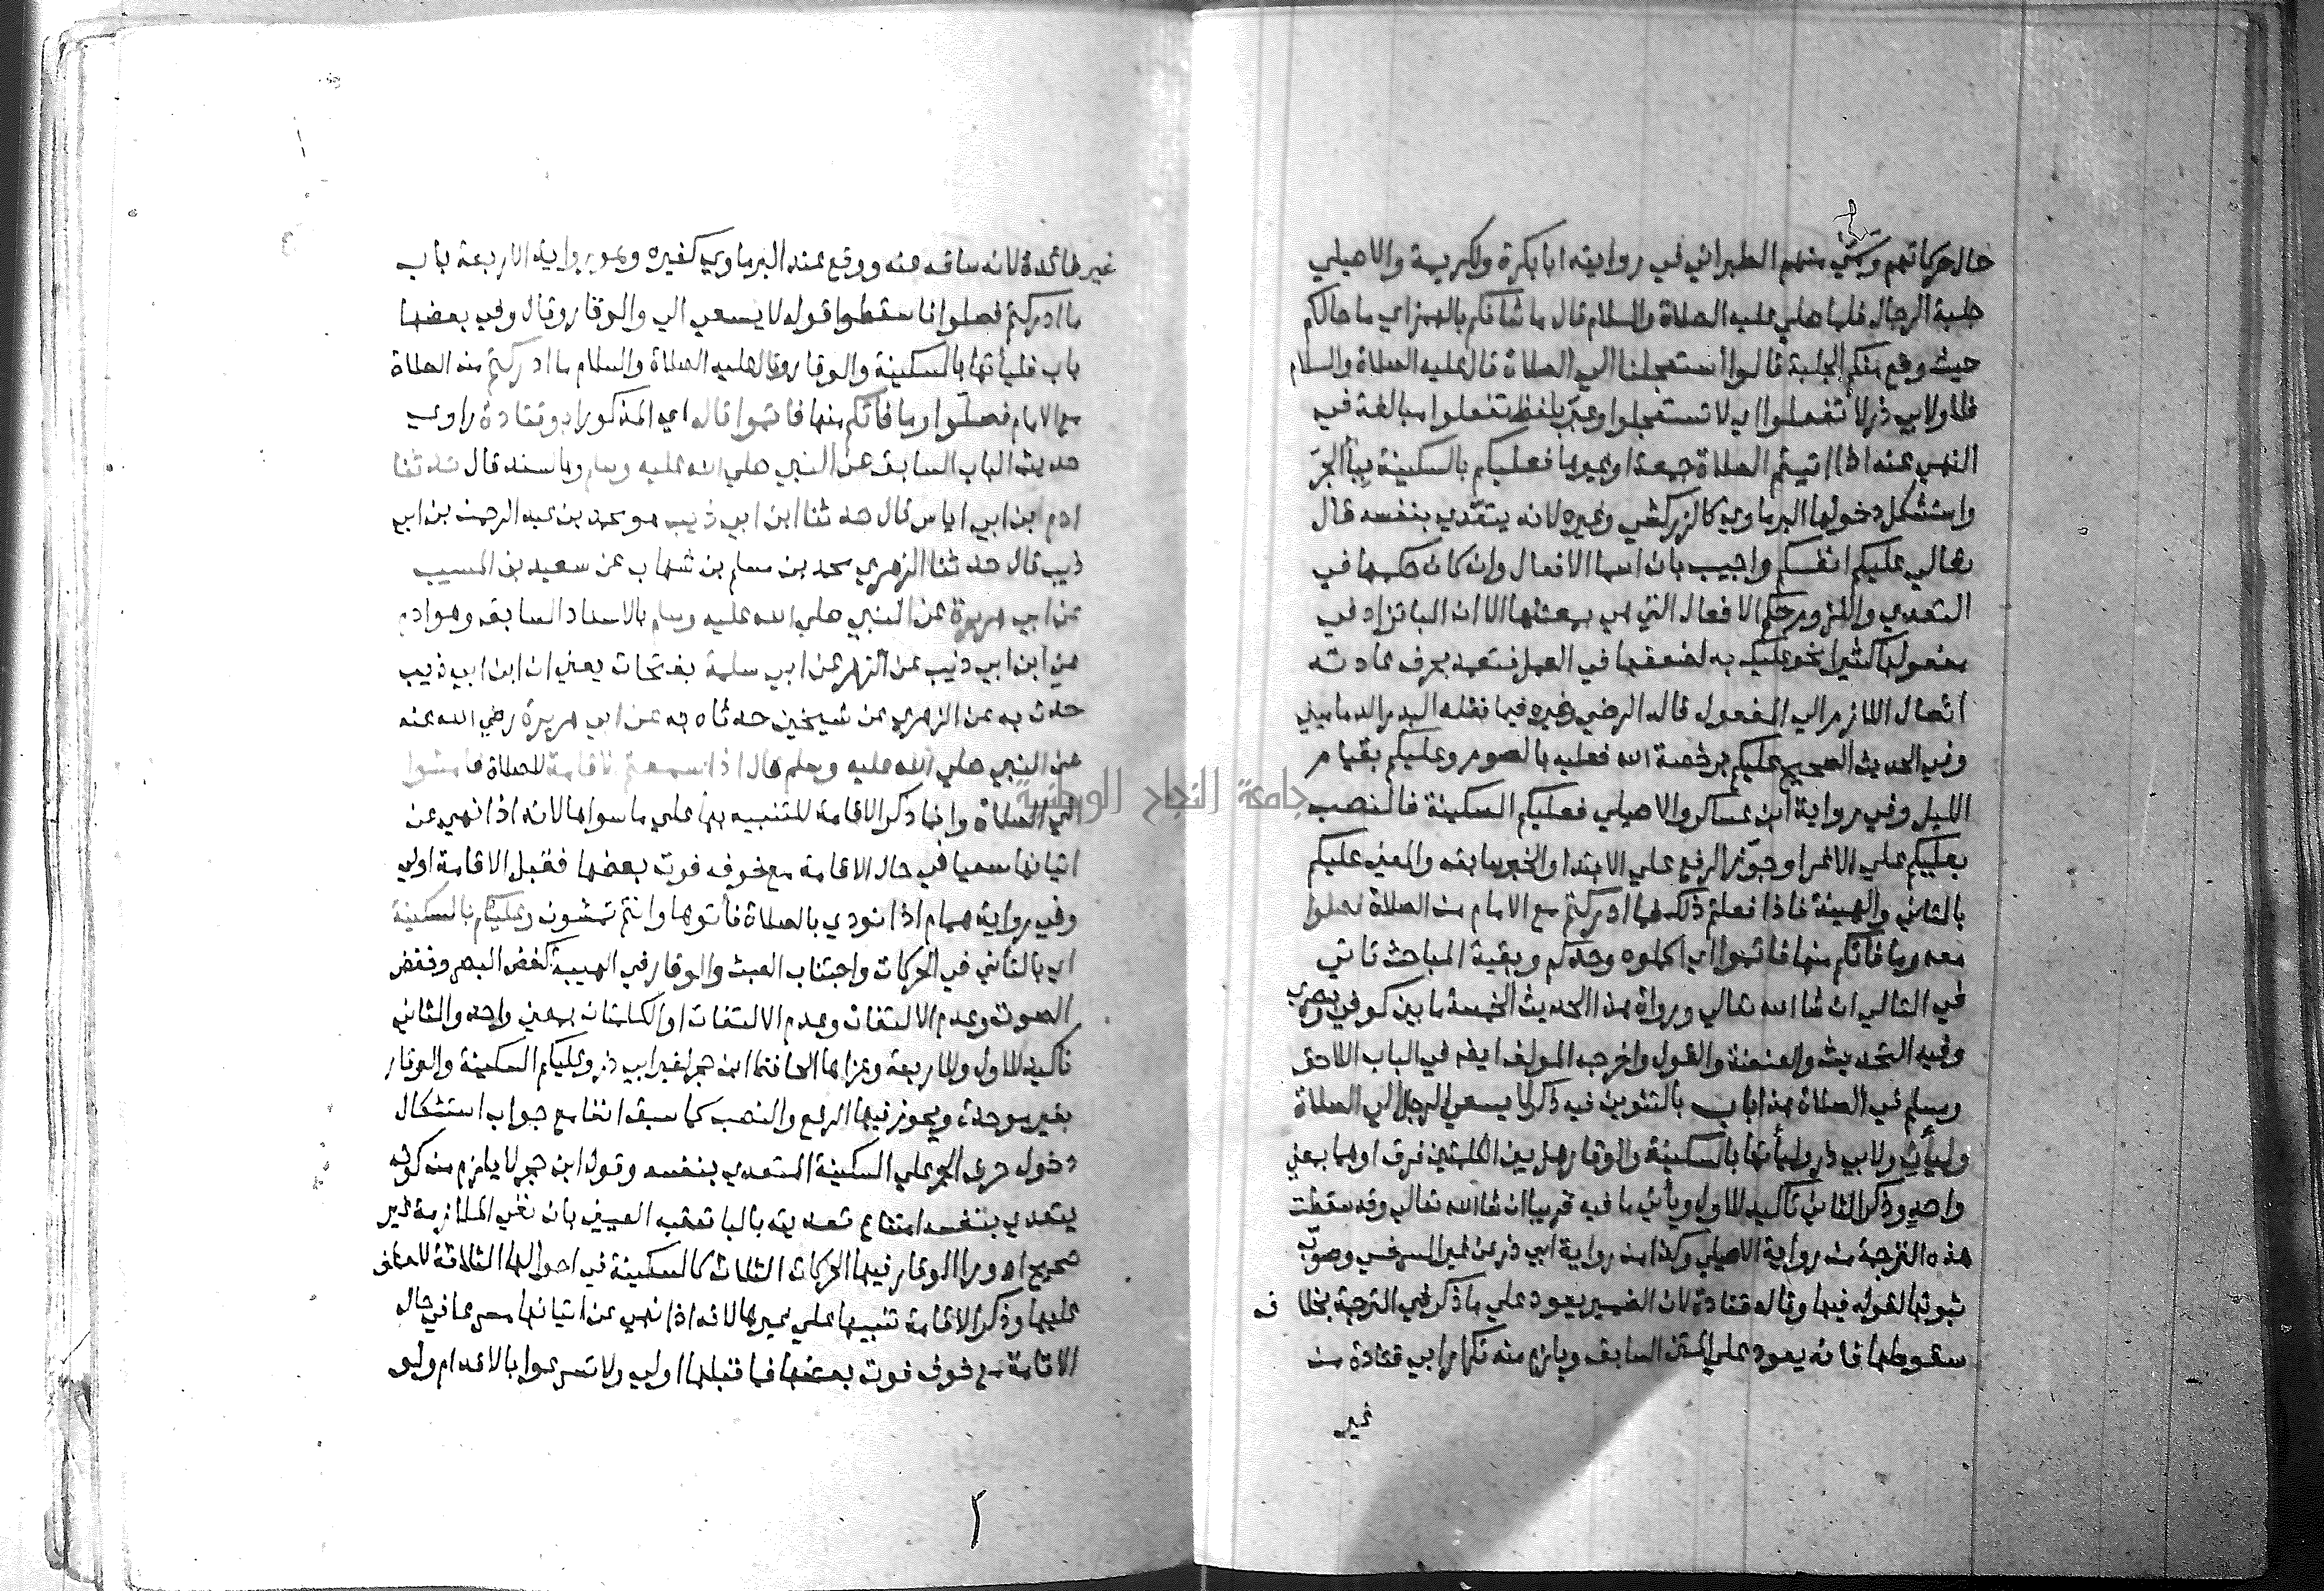 حال حركاتهم وسمي منهم الطبراني في روايته ابا بكرة ولكريمة والاصيلي
جلبة الرجال فلما صلي عليه الصلاة والسلام قال ما شانكم بالهمز اي ما حالكم
حيث وقع منكم الجلبة قالوا استعجلنا الي الصلاة قال عليه الصلاة والسلام
فلا ولابي ذر لا تفعلوا اي لا تستعجلوا وعبر بلفظ تفعلوا مبالغة في
النهي عنه اذا اتيتم الصلاة جمعة او غيرها فعليكم بالسكينة ببا الجر
واستشكل دخولها البرماوي كالزركشي وغيره لانه يتعدي بنفسه قال
تعالي عليكم انفسكم واجيب بان اسما الافعال وان كان حكمها في
التعدي واللزوم حكم الافعال التي هي بمعناها الا ان البا تزاد في
مفعولها كثيرا نحو عليك به لضعفها في العمل فتعمد بحرف عادته
اتصال اللازم الي المفعول قاله الرضي وغيره فيما نقله البدر الدماميني
وفي الحديث الصحيح عليكم برخصة الله فعليه بالصوم وعليكم بقيام
الليل وفي رواية ابن عساكر والاصيلي فعليكم السكينة فالنصب
بعليكم علي الاغرا وجوز الرفع علي الابتدا والخبر سابقه والمعني عليكم
بالتاني والهينة فاذا فعلتم ذلك فما ادركتم مع الامام من الصلاة فصلوا
معه وما فاتكم منها فاتموا اي اكملوه وحدكم وبقية المباحث تاتي
في التالي ان شا الله تعالي ورواة هذا الحديث الخمسة ما بين كوفي وبصري
وفيه التحديث والعنعنة والقول واخرجه المولف ايضا في الباب اللاحق
ومسلم في الصلاة هذا باب بالتنوين فيه ذكر لا يسعي الرجل الي الصلاة
وليأت ولابي ذر وليأتها بالسكينة والوقار هل بين الكلمتين فرق او هما بمعني
واحد وذكر الثاني تاكيد للاول ويأتي ما فيه قريبا ان شا الله تعالي وقد سقطت
هذه الترجمة من رواية الاصيلي وكذا من رواية ابي ذر عن غير السرخسي وصوب
ثبوتها لقوله فيها وقاله قتادة لان الضمير يعود علي ما ذكر في الترجمة بخلا ف
سقوطها فانه يعود علي المتن السابق ويلزم منه تكرار ابي قتادة من
غير
غير فائدة لانه ساقه عنه ووقع عند البرماوي كغيره وعمو رواية الاربعة باب
ما ادركتم فصلوا فاسقطوا قوله لا يسعي الي والوقار وقال وفي بعضها
باب فليأتها بالسكينة والوقار وقال عليه الصلاة والسلام ما ادركتم من الصلاة
مع الامام فصلوا وما فاتكم منها فاتموا قاله اي المذكور ابو قتادة راوي
حديث الباب السابق عن النبي صلي الله عليه وسلم وبالسند قال حدثنا
ادم ابن ابي اياس قال حدثنا ابن ابي ذيب هو محمد بن عبد الرحمن بن ابي
ذيب قال حدثنا الزهري محمد بن مسلم بن شهاب عن سعيد بن المسيب
عن ابي هريرة عن النبي صلي الله عليه وسلم بالاسناد السابق وهو ادم
عن ابن ابي ذيب عن الزهر عن ابي سلمة بفتحات يعني ان ابن ابي ذيب
حدث به عن الزهري عن شيخين حدثاه به عن ابي هريرة رضي الله عنه
عن النبي صلي الله عليه وسلم قال اذا سمعتم الاقامة للصلاة فامشوا
الي الصلاة وانما ذكر الاقامة للتنبيه بها علي ما سواها لانه اذا نهي عن
اتيانها سعيا في حال الاقامة مع خوف فوت بعضها فقبل الاقامة اولي
وفي رواية همام اذا نودي بالصلاة فأتوها وانتم تمشون وعليكم بالسكينة
اي بالتأني في الحركات واجتناب العبث والوقار في الهيبة كغض البصر وخفض
الصوت وعدم الالتفات وعدم الالتفات او الكلمتان بمعني واحد والثاني
تاكيد للاول وللاربعة وعزاها الحافظ ابن حجر لغير ابي ذر وعليكم السكينة والوقار
بغير موحدة ويجوز فيها الرفع والنصب كما سبق انفا مع جواب استشكال
دخول حرف الجر علي السكينة المتعدي بنفسه وقول ابن حجر لا يلزم من كونه
يتعدي بنفسه امتناع تعديته بالبا تعقبه العيني بان نفي الملازمة غير
صحيح اه ورا الوقار فيها الحركات الثلاث كالسكينة في احوالها الثلاثة للعطف
عليها وذكر الاقامة تنبيها علي غيرها لانه اذا نهي عن اتيانها مسرعا في حال
الاقامة مع خوف فوت بعضها فما قبلها اولي ولا تسرعوا بالاقدام ولو
٢
جامعة النجاح الوطنية